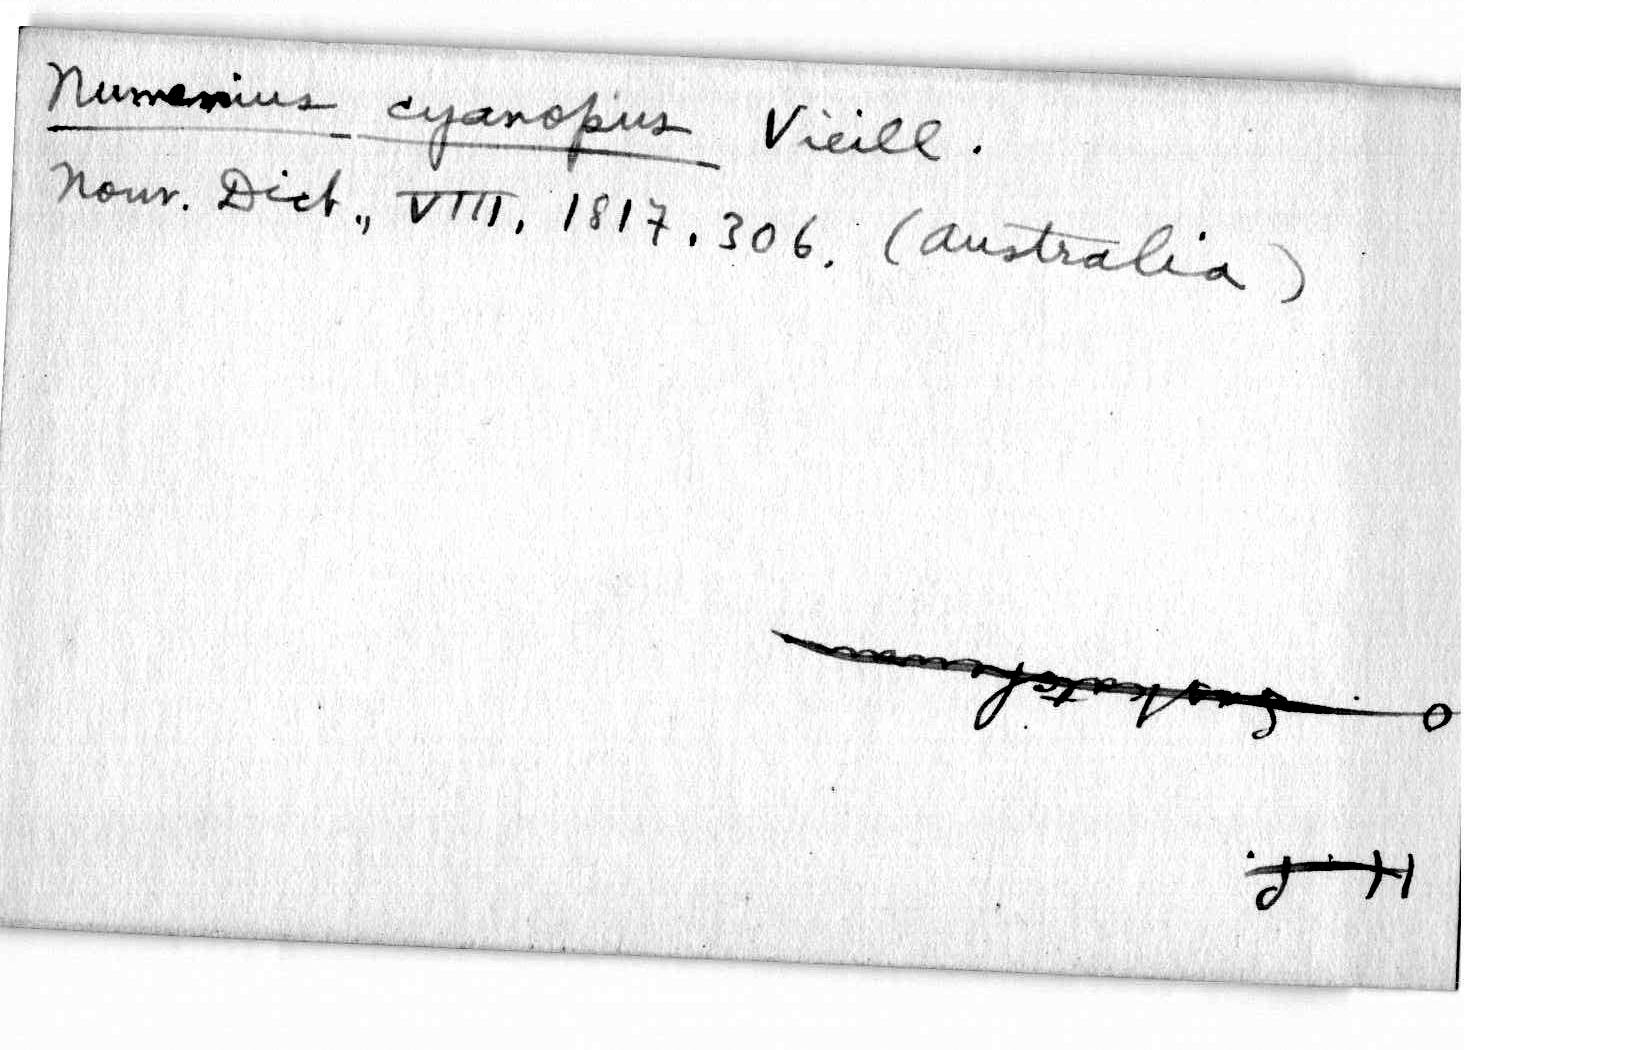 Numenius cyanopus Vieill.
Nouv. Dict., VIII, 1817, 306. (Australia)